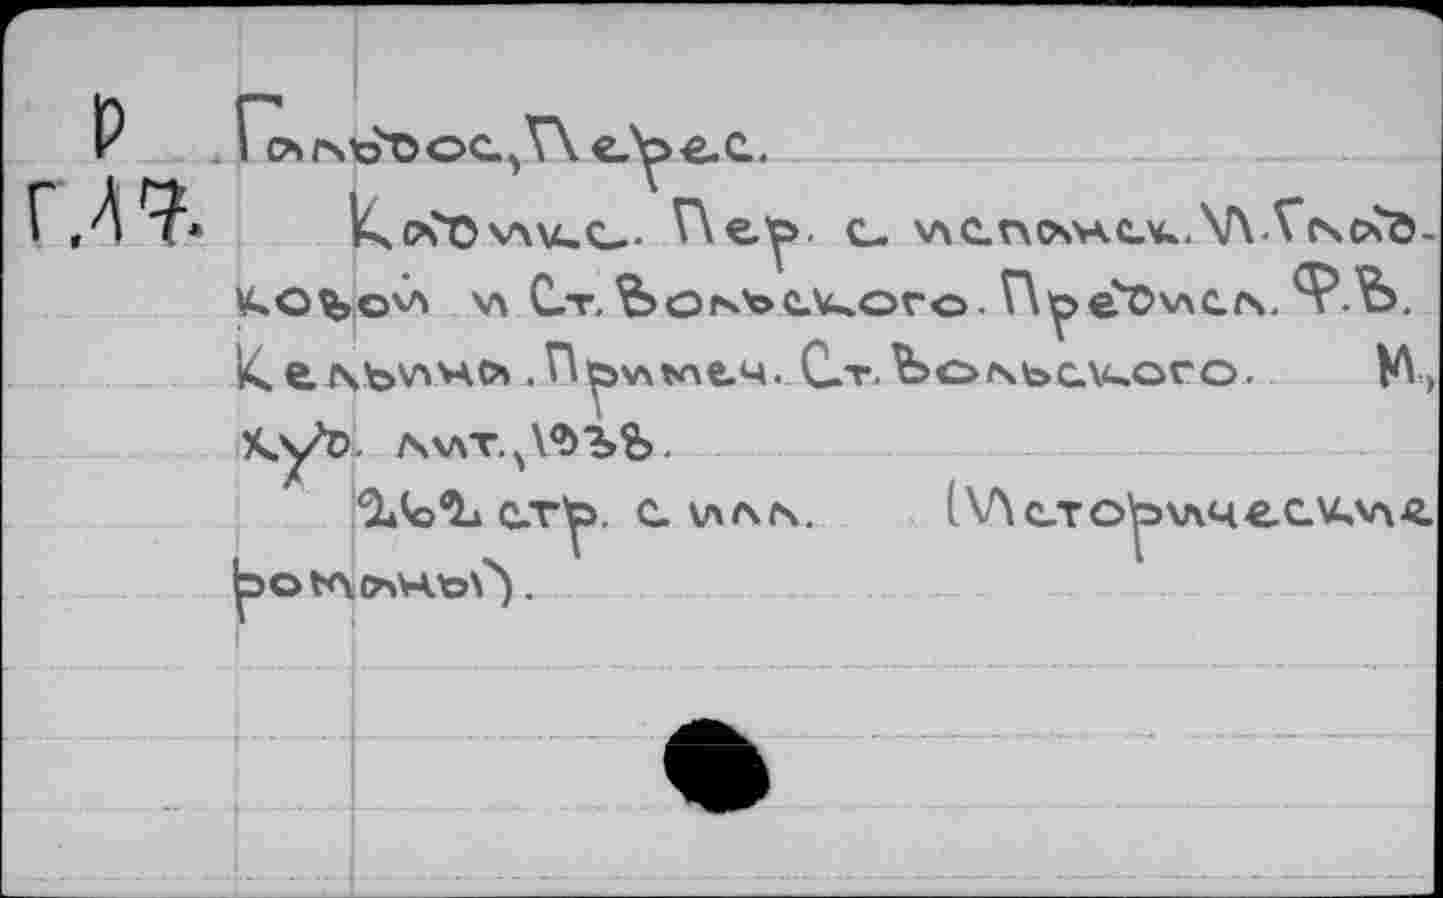 Р Гальдос, Перес.
Г.17. Кадикс. Пер. с испанск. И. Глад-
ковой и Ст. Вольского. Предисл. Ф.В.
Кельина. Примеч. Ст. Вольского. М.,
Худ. лит., 1938.
262 стр. с илл. (Исторические
романы).